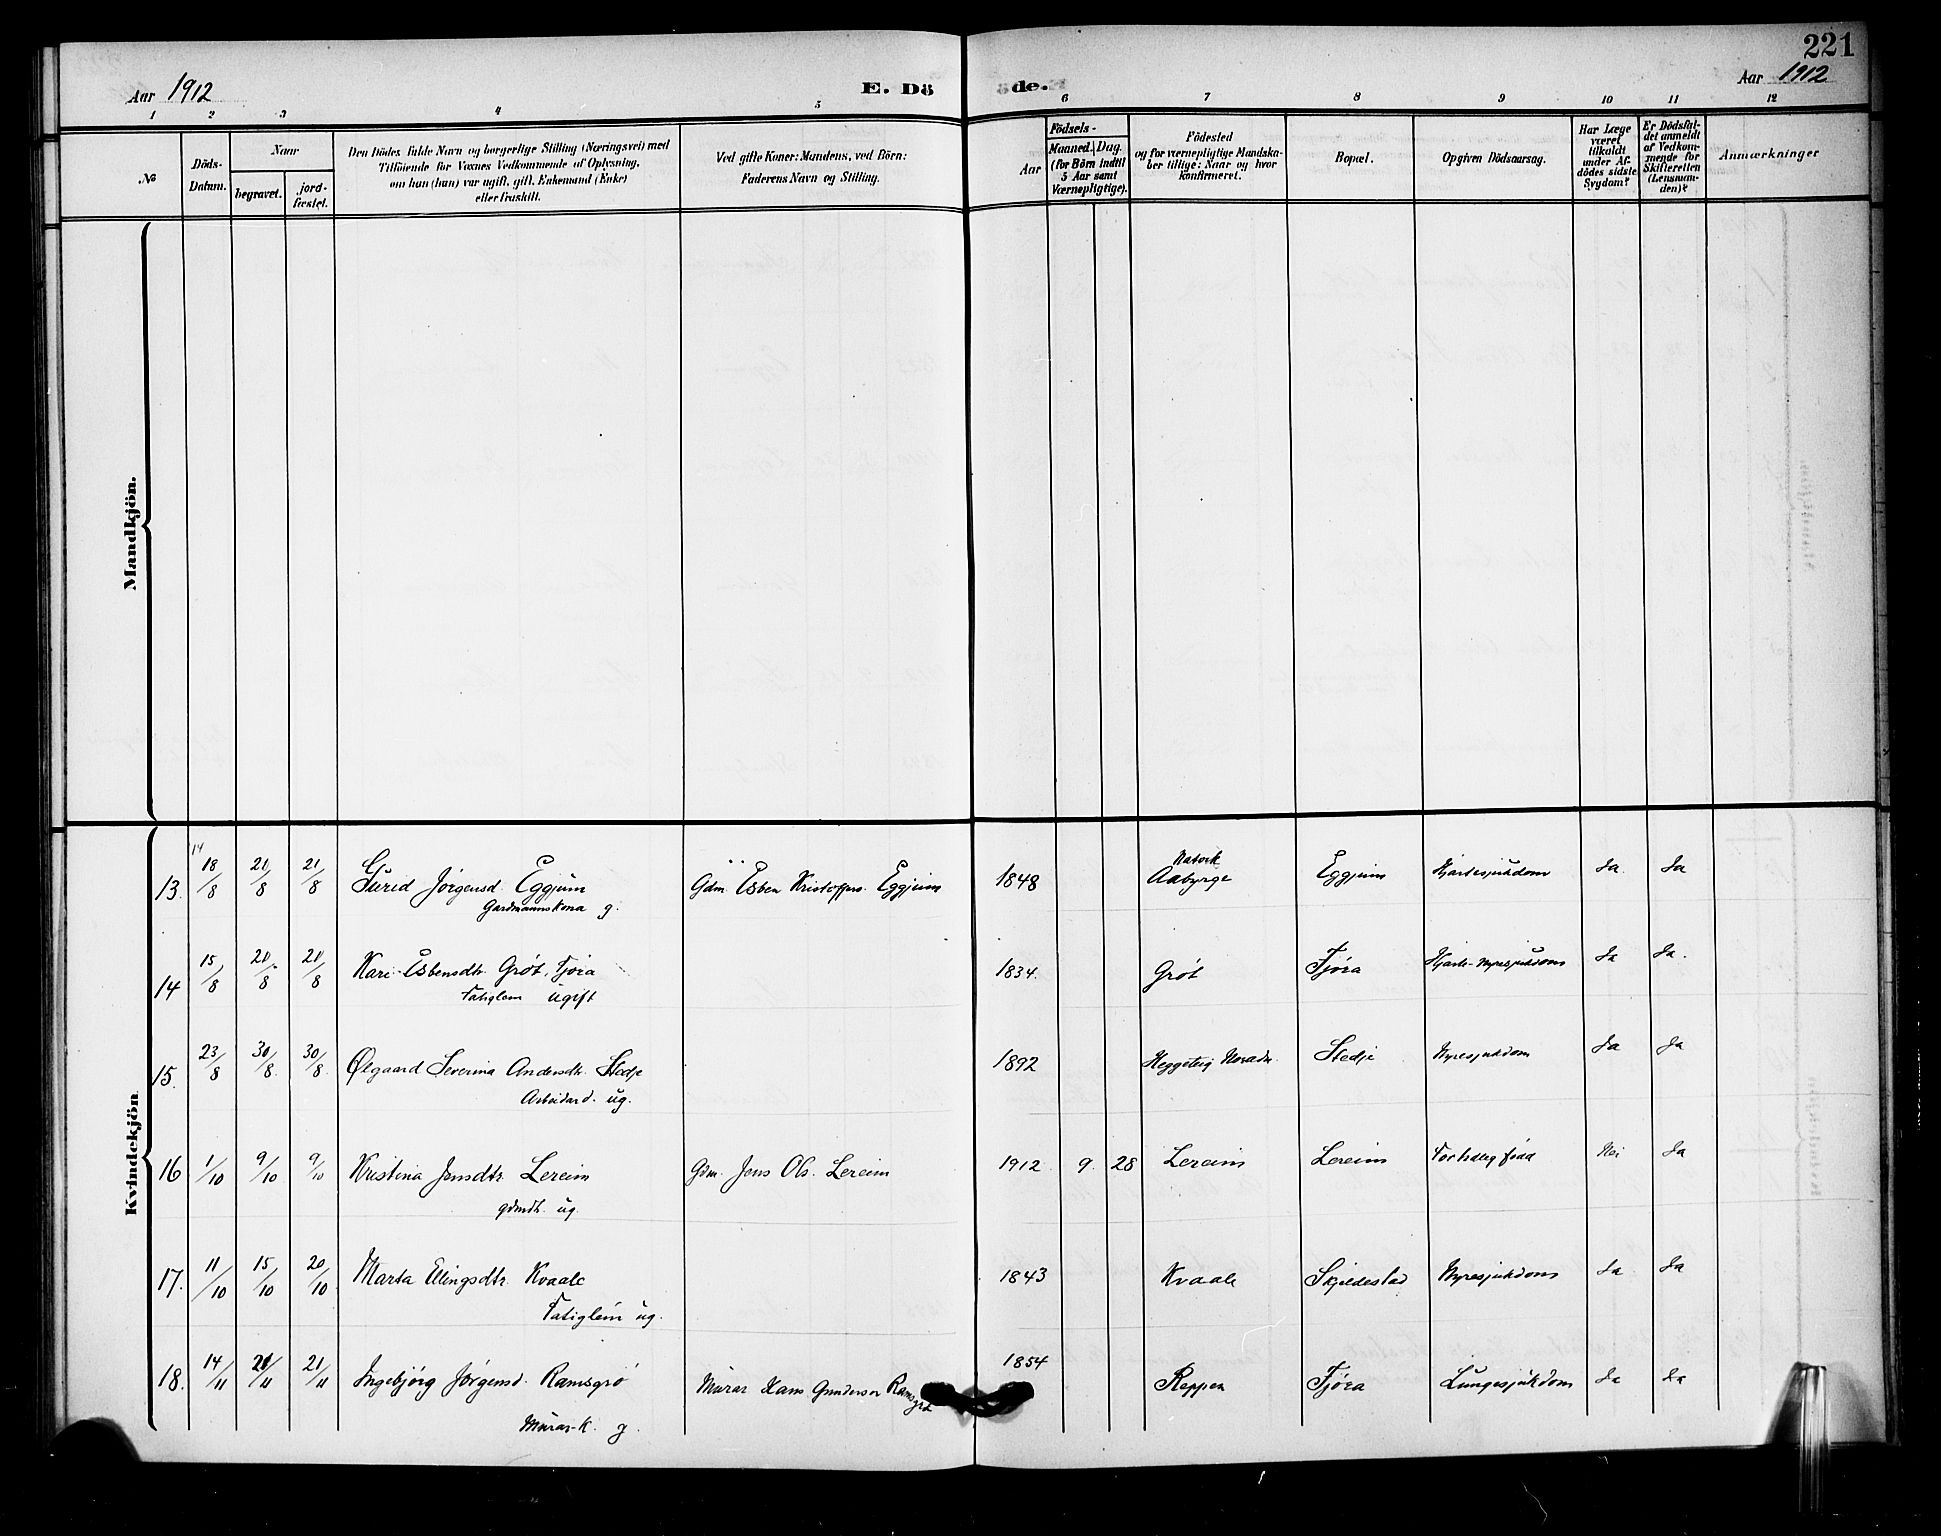 221
Aar 1912
E. Döde.
Aar 1912
1 2 3 4 5 6 7 8 9 10 11 12
№
Döds-Datum.
Naar
begravet.
jord-fæstet.
Den Dödes fulde Navn og borgerlige Stilling (Næringsvei) med
Tilföiende for Voxnes Vedkommende af Oplysning,
om hun (han) var ugift, gift, Enkemand (Enke)
eller fraskilt.
Ved gifte Koner: Mandens, ved Börn:
Faderens Navn og Stilling.
Aar
Födsels-
Maaned. Dag.
(for Börn indtil
5 Aar samt
Værnepligtige).
Födested
og for værnepligtige Mandska-
ber tillige: Naar og hvor
konfirmeret.
Bopæl.
Opgiven Dödsaarsag.
Har Læge
været
tilkaldt
under Af-
dödes sidste
Sygdom?
Er Dödsfal-
det anmeldt
af Vedkom-
mende for
Skifteretten
(Lensman-
den)?
Anmærkninger
Mandkjön.
Kvindekjön
13. 14 18/8 21/8 21/8 Gurid Jørgensd. Eggjum Gdm. Esben Kristoffers. Eggjum 1848 Natvik Aabyrge Eggjum Hjartesjukdom Ja Ja
Gardmannskona g.
14 15/8 21/8 21/8 Kari Esbensdtr. Grøt, Fjøra 1834. Grøt Fjøra Hjarte-nyresjukdom Ja Ja.
Fatiglem ugift
15. 23/8 30/8 30/8 Ølgaard Severina Andersdtr. Stedje 1892 Heggeteig Stedje Nyresjukdom Ja Ja
Arbeidard. ug.
16 1/10 9/10 9/10 Kristina Jensdtr. Lereim Gdm. Jens Ols. Lereim 1912 9. 28 Lereim Lereim Fortidleg fødd Nei Ja
gdmdtr. ug.
17. 11/10 15/10 20/10 Marta Ellingsdtr. Kvaale 1843 Kvaale Skjeldestad Nyresjukdom Ja Ja
Fatiglem ug.
18. 14/11 21/11 21/11 Ingebjørg Jørgensd. Ramsgrø Murar Hans Gunderson Ramsgrø 1854 Reppen Fjøra Lungesjukdom Ja Ja
Murar-k. g.